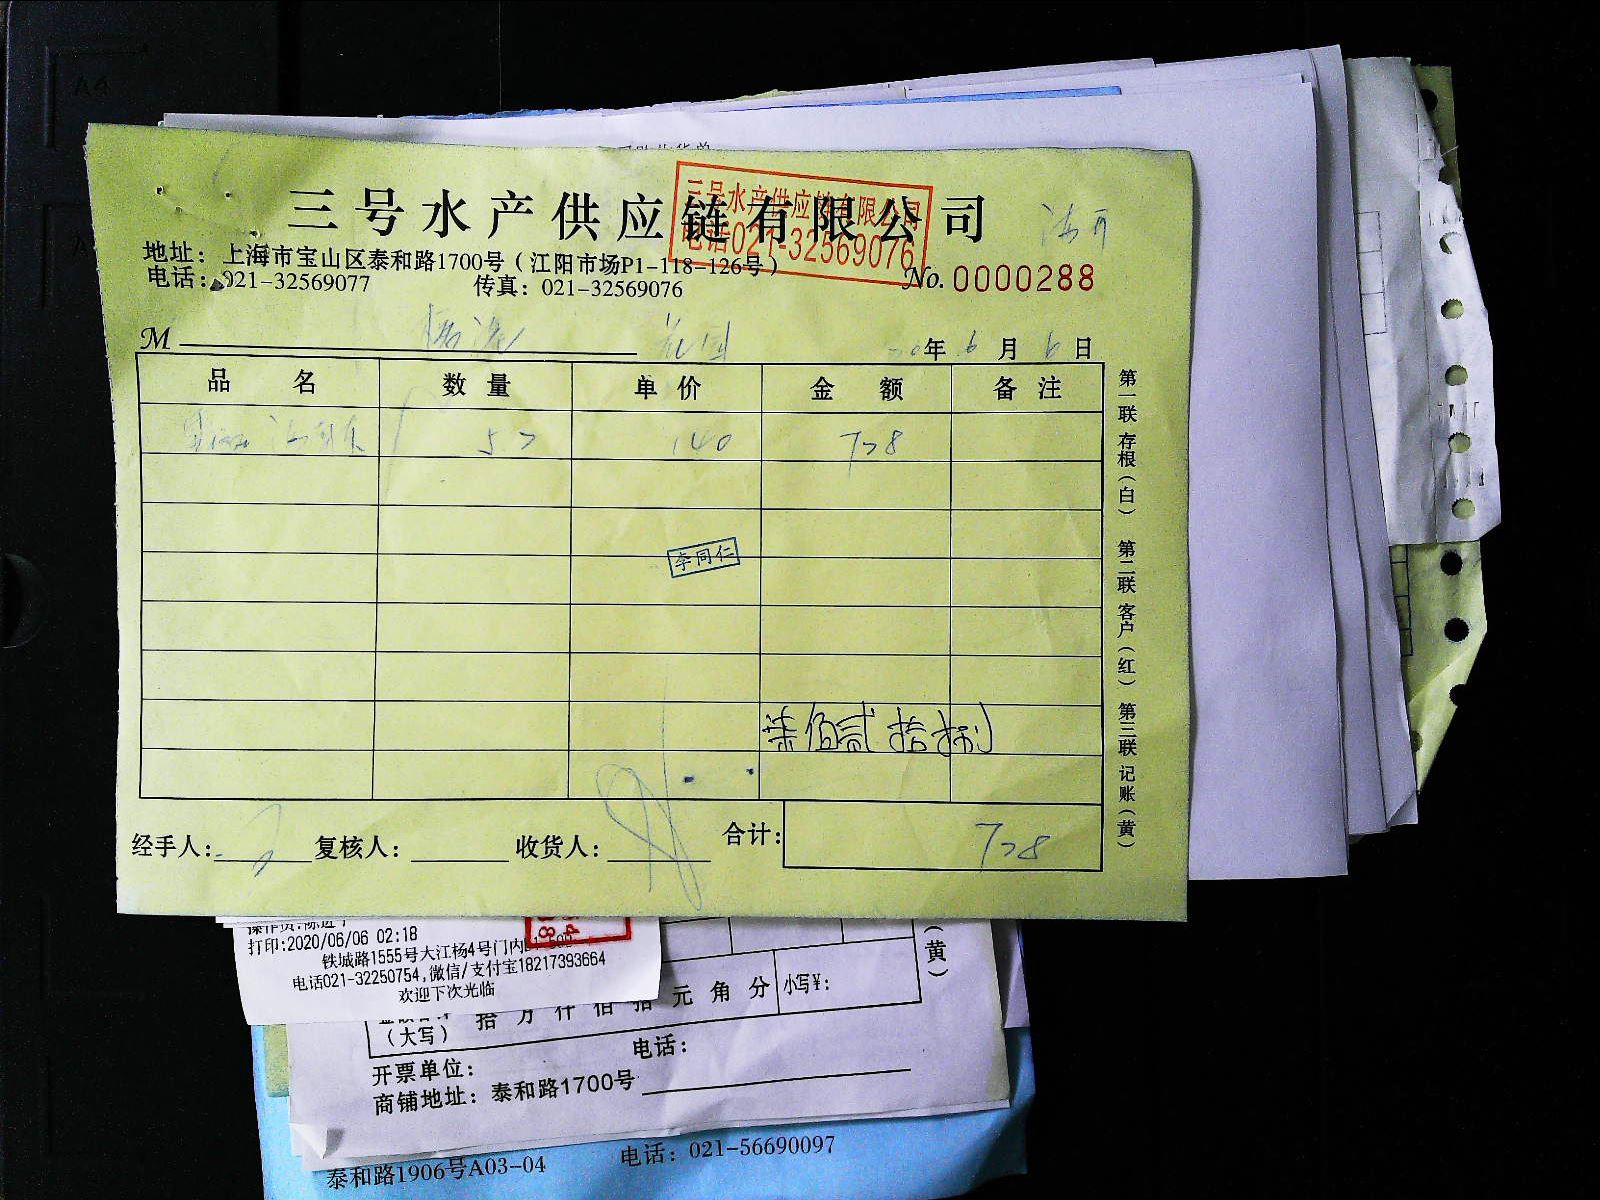 三号水产供应链有限公司
三号水产供应链有限公司
电话021-32569076
地址：上海市宝山区泰和路1700号（江阳市场P1-118-126号）
电话：021-32569077 传真：021-32569076
No. 0000288
M
20年 6月 6日
品名 数量 单价 金额 备注
140 728
李同仁
柒佰贰拾捌
经手人： 复核人： 收货人： 合计： 728
第一联 存根（白） 第二联 客户（红） 第三联 记账（黄）
打印:2020/06/06 02:18
铁城路1555号大江杨4号门内
电话021-32250754,微信/支付宝18217393664
欢迎下次光临
（黄）
（大写） 拾 万 仟 佰 拾 元 角 分 小写¥：
开票单位： 电话：
商铺地址：泰和路1700号
泰和路1906号A03-04 电话：021-56690097